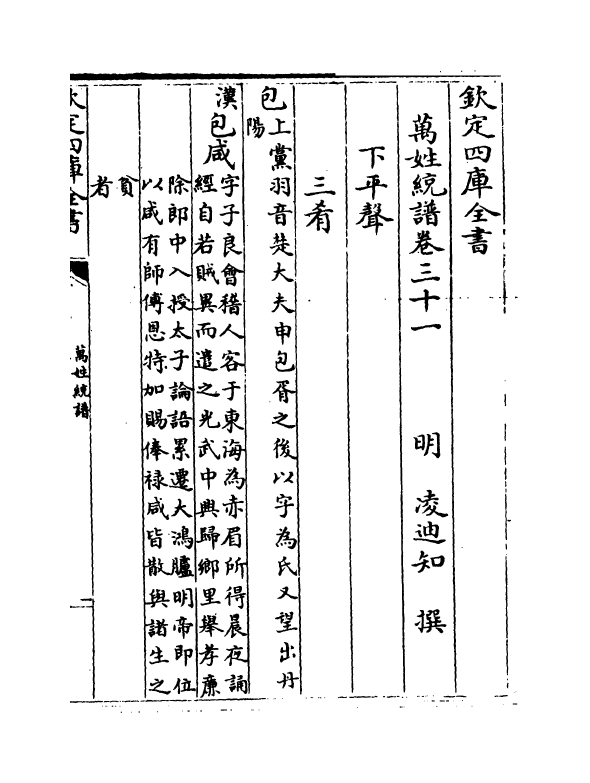 欽定四庫全書
萬姓統譜卷三十一
明 凌迪知 撰
下平聲
三肴
包
上黨羽音楚大夫申包胥之後以字為氏又望出丹
陽
漢
包咸
字子良會稽人客于東海為赤眉所得晨夜誦
經自若賊異而遣之光武中興歸鄉里舉孝廉
除郎中入授太子論語累遷大鴻臚明帝即位
以咸有師傅恩特加賜俸祿咸皆散與諸生之
貧
者
欽定四庫全書
萬姓統譜